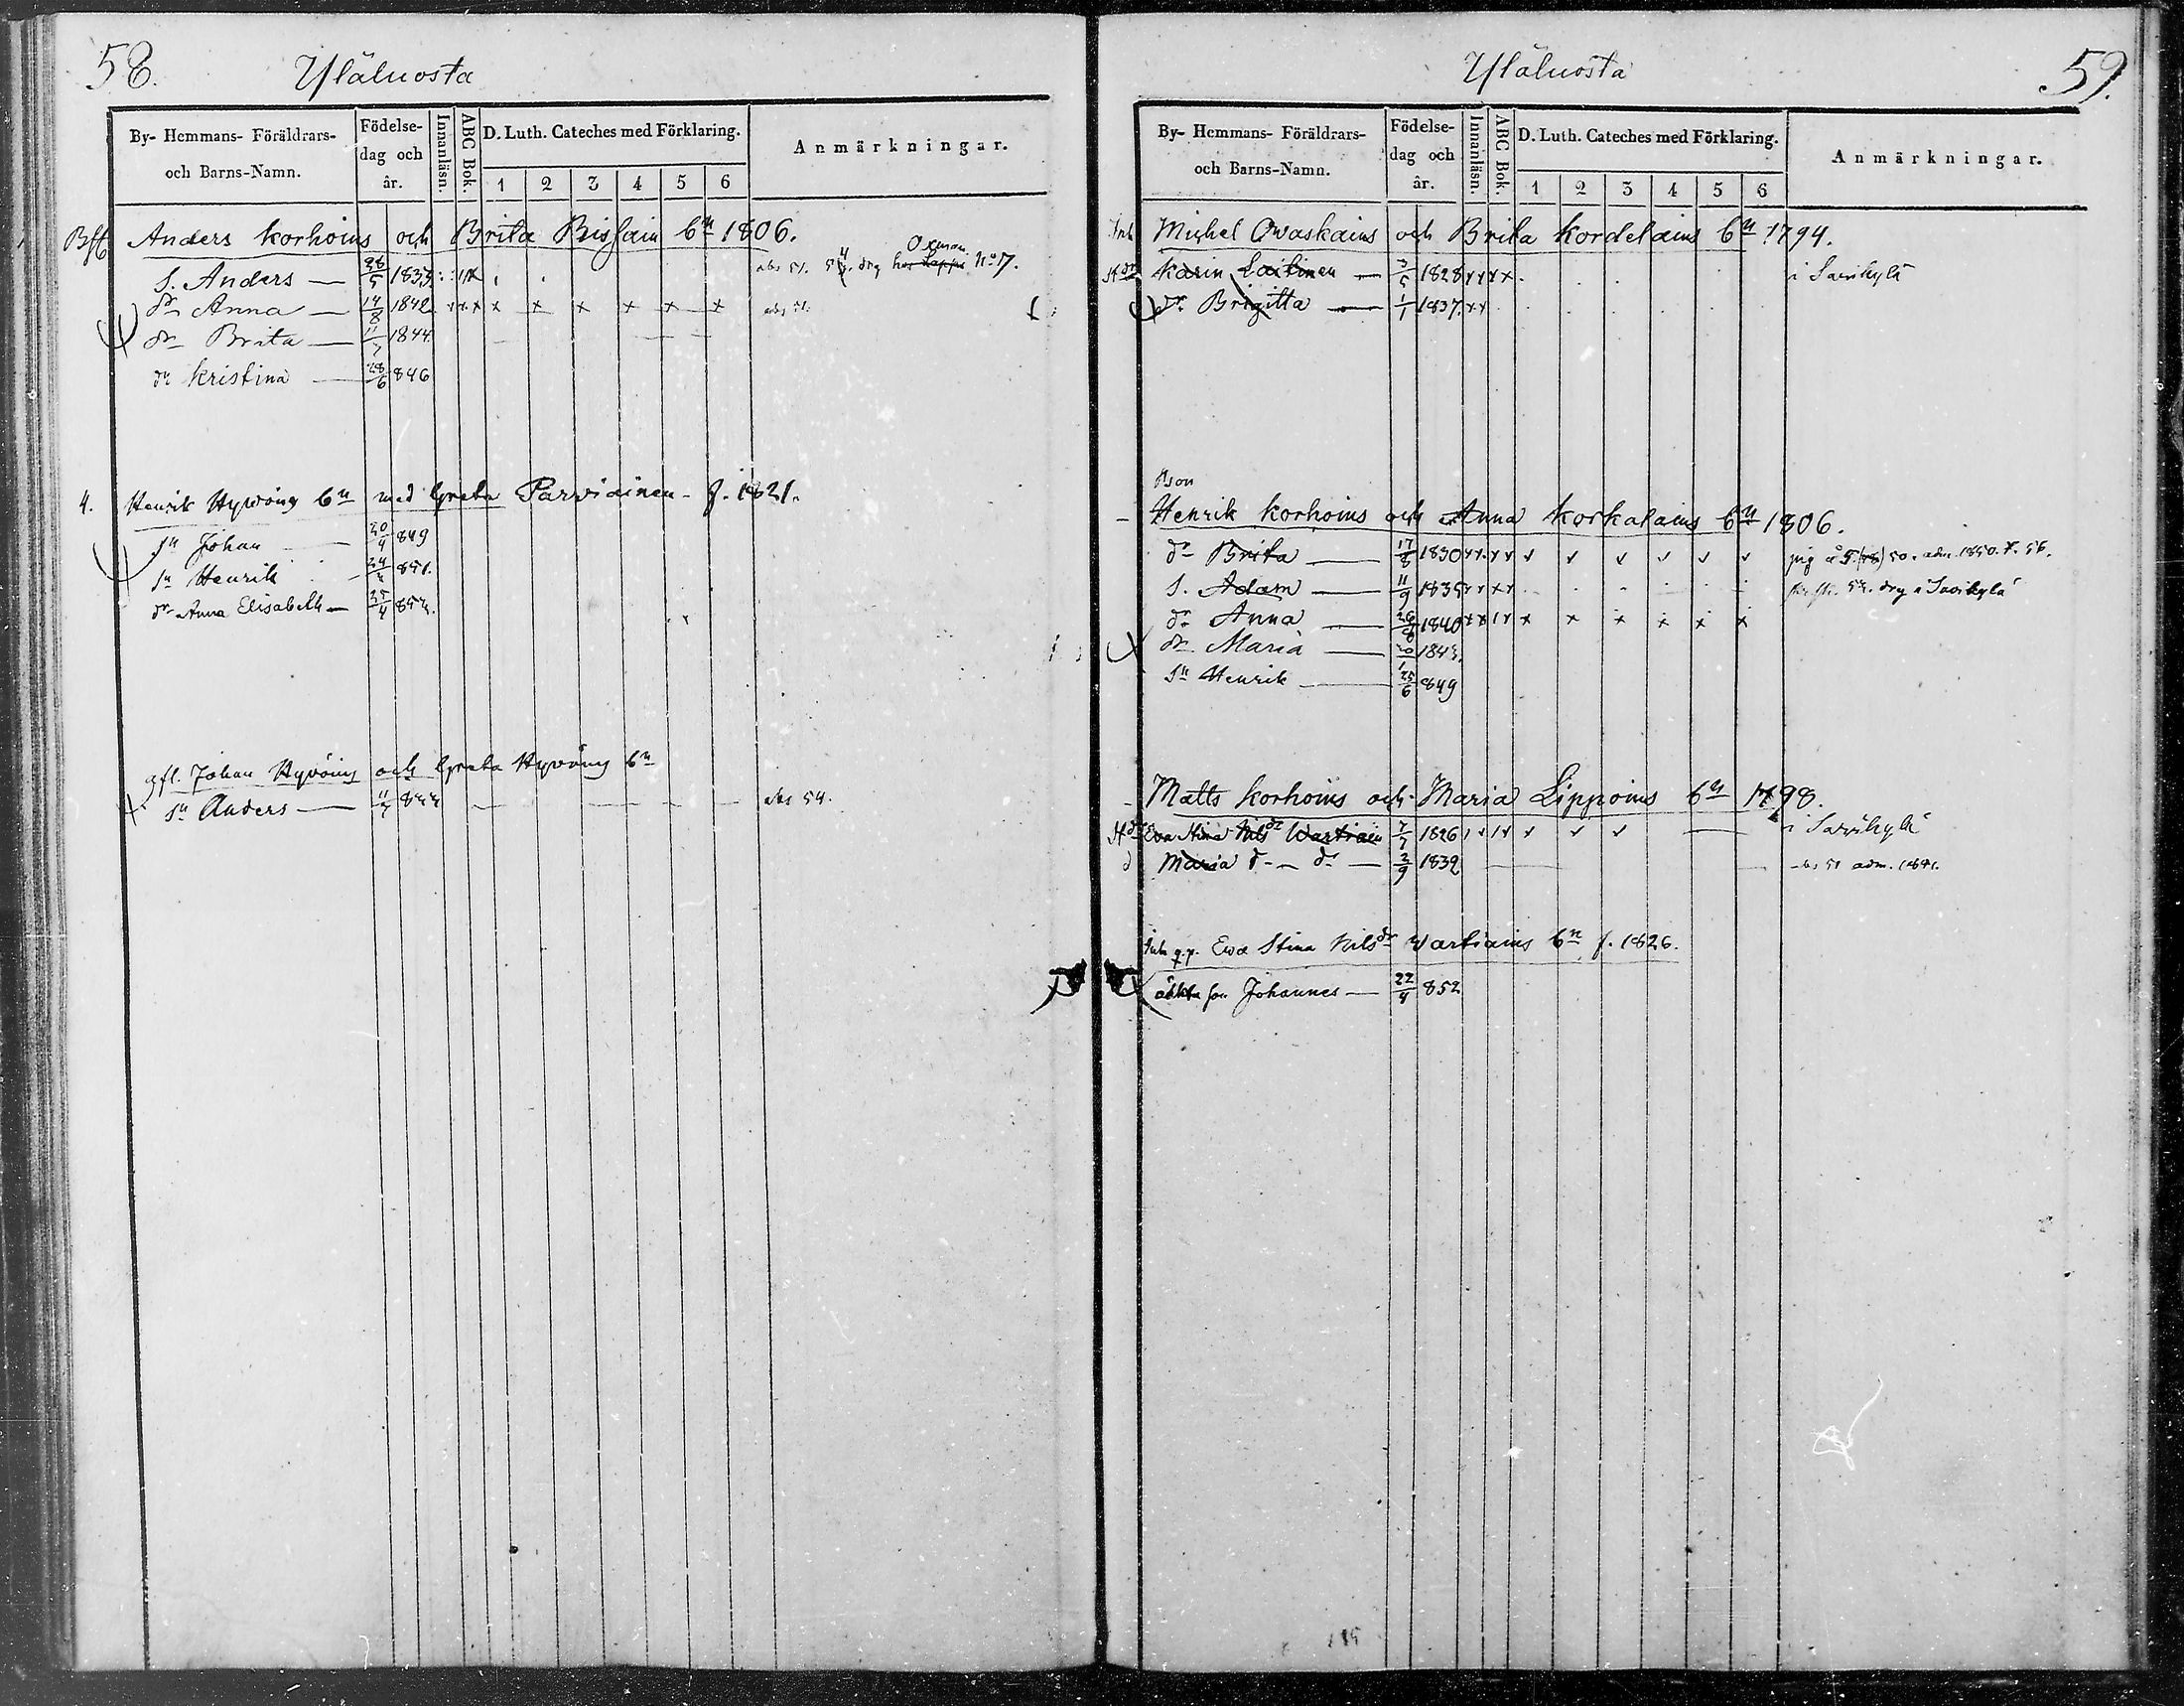 58.
Yläluosta
By- Hemmans- Föräldrars- och Barns-Namn.
Födelse- dag och år.
Innanläsn.
ABC Bok.
D. Luth. Cateches med Förklaring.
1 2 3 4 5 6
Anmärkningar.
Anders Korhoins och Brita 6n 1806.
s. Anders — 28/5 1833 abs 51. drg hos Lappi No 17.
Oxman
dr Anna — 14/8 1842 x x x x x x x x x abs 51.
dr Brita — 11/7 1844
dr Kristina — 28/6 846
4. Henrik Hyvöns 6n med Greta Parviainen - f. 1821.
sn Johan 20/4 849
sn Henrik 851.
dr Anna Elisabeth —
gfl. Johan Hyvöins och Greta Hyvöins 6n
sn Anders — abs 54.
59.
Yläluosta
By- Hemmans- Föräldrars- och Barns-Namn.
Födelse- dag och år.
Innanläsn.
ABC Bok.
D. Luth. Cateches med Förklaring.
1 2 3 4 5 6
Anmärkningar.
Inh Michel Owaskains och Brita Kordelains 6n 1794.
Karin Laitinen — 3/5 1828 x x x x i Savikylä
dr Brigitta — 1/1 1837. x x
Henrik Korhoins och Anna Korkalains 6n 1806.
dr Brita — 17/8 1830 50. adm. 1850.
s. Adam — 11/9 1835 drg i Savikylä
dr Anna — 1840 x x x x x x
dr Maria —
sn Henrik — 25/6 849
Matts Korhoins och Maria Lippoins 6n 1798.
Eva Stina Nilsdr Wartiain 7/7 1826 i Savikylä
d Maria d — dr — 2/9 1839 abs 51 adm.
Inh q.p. Ewa Stina Nilsdr Wartiains 6n f. 1826.
Johannes — 22/4 852